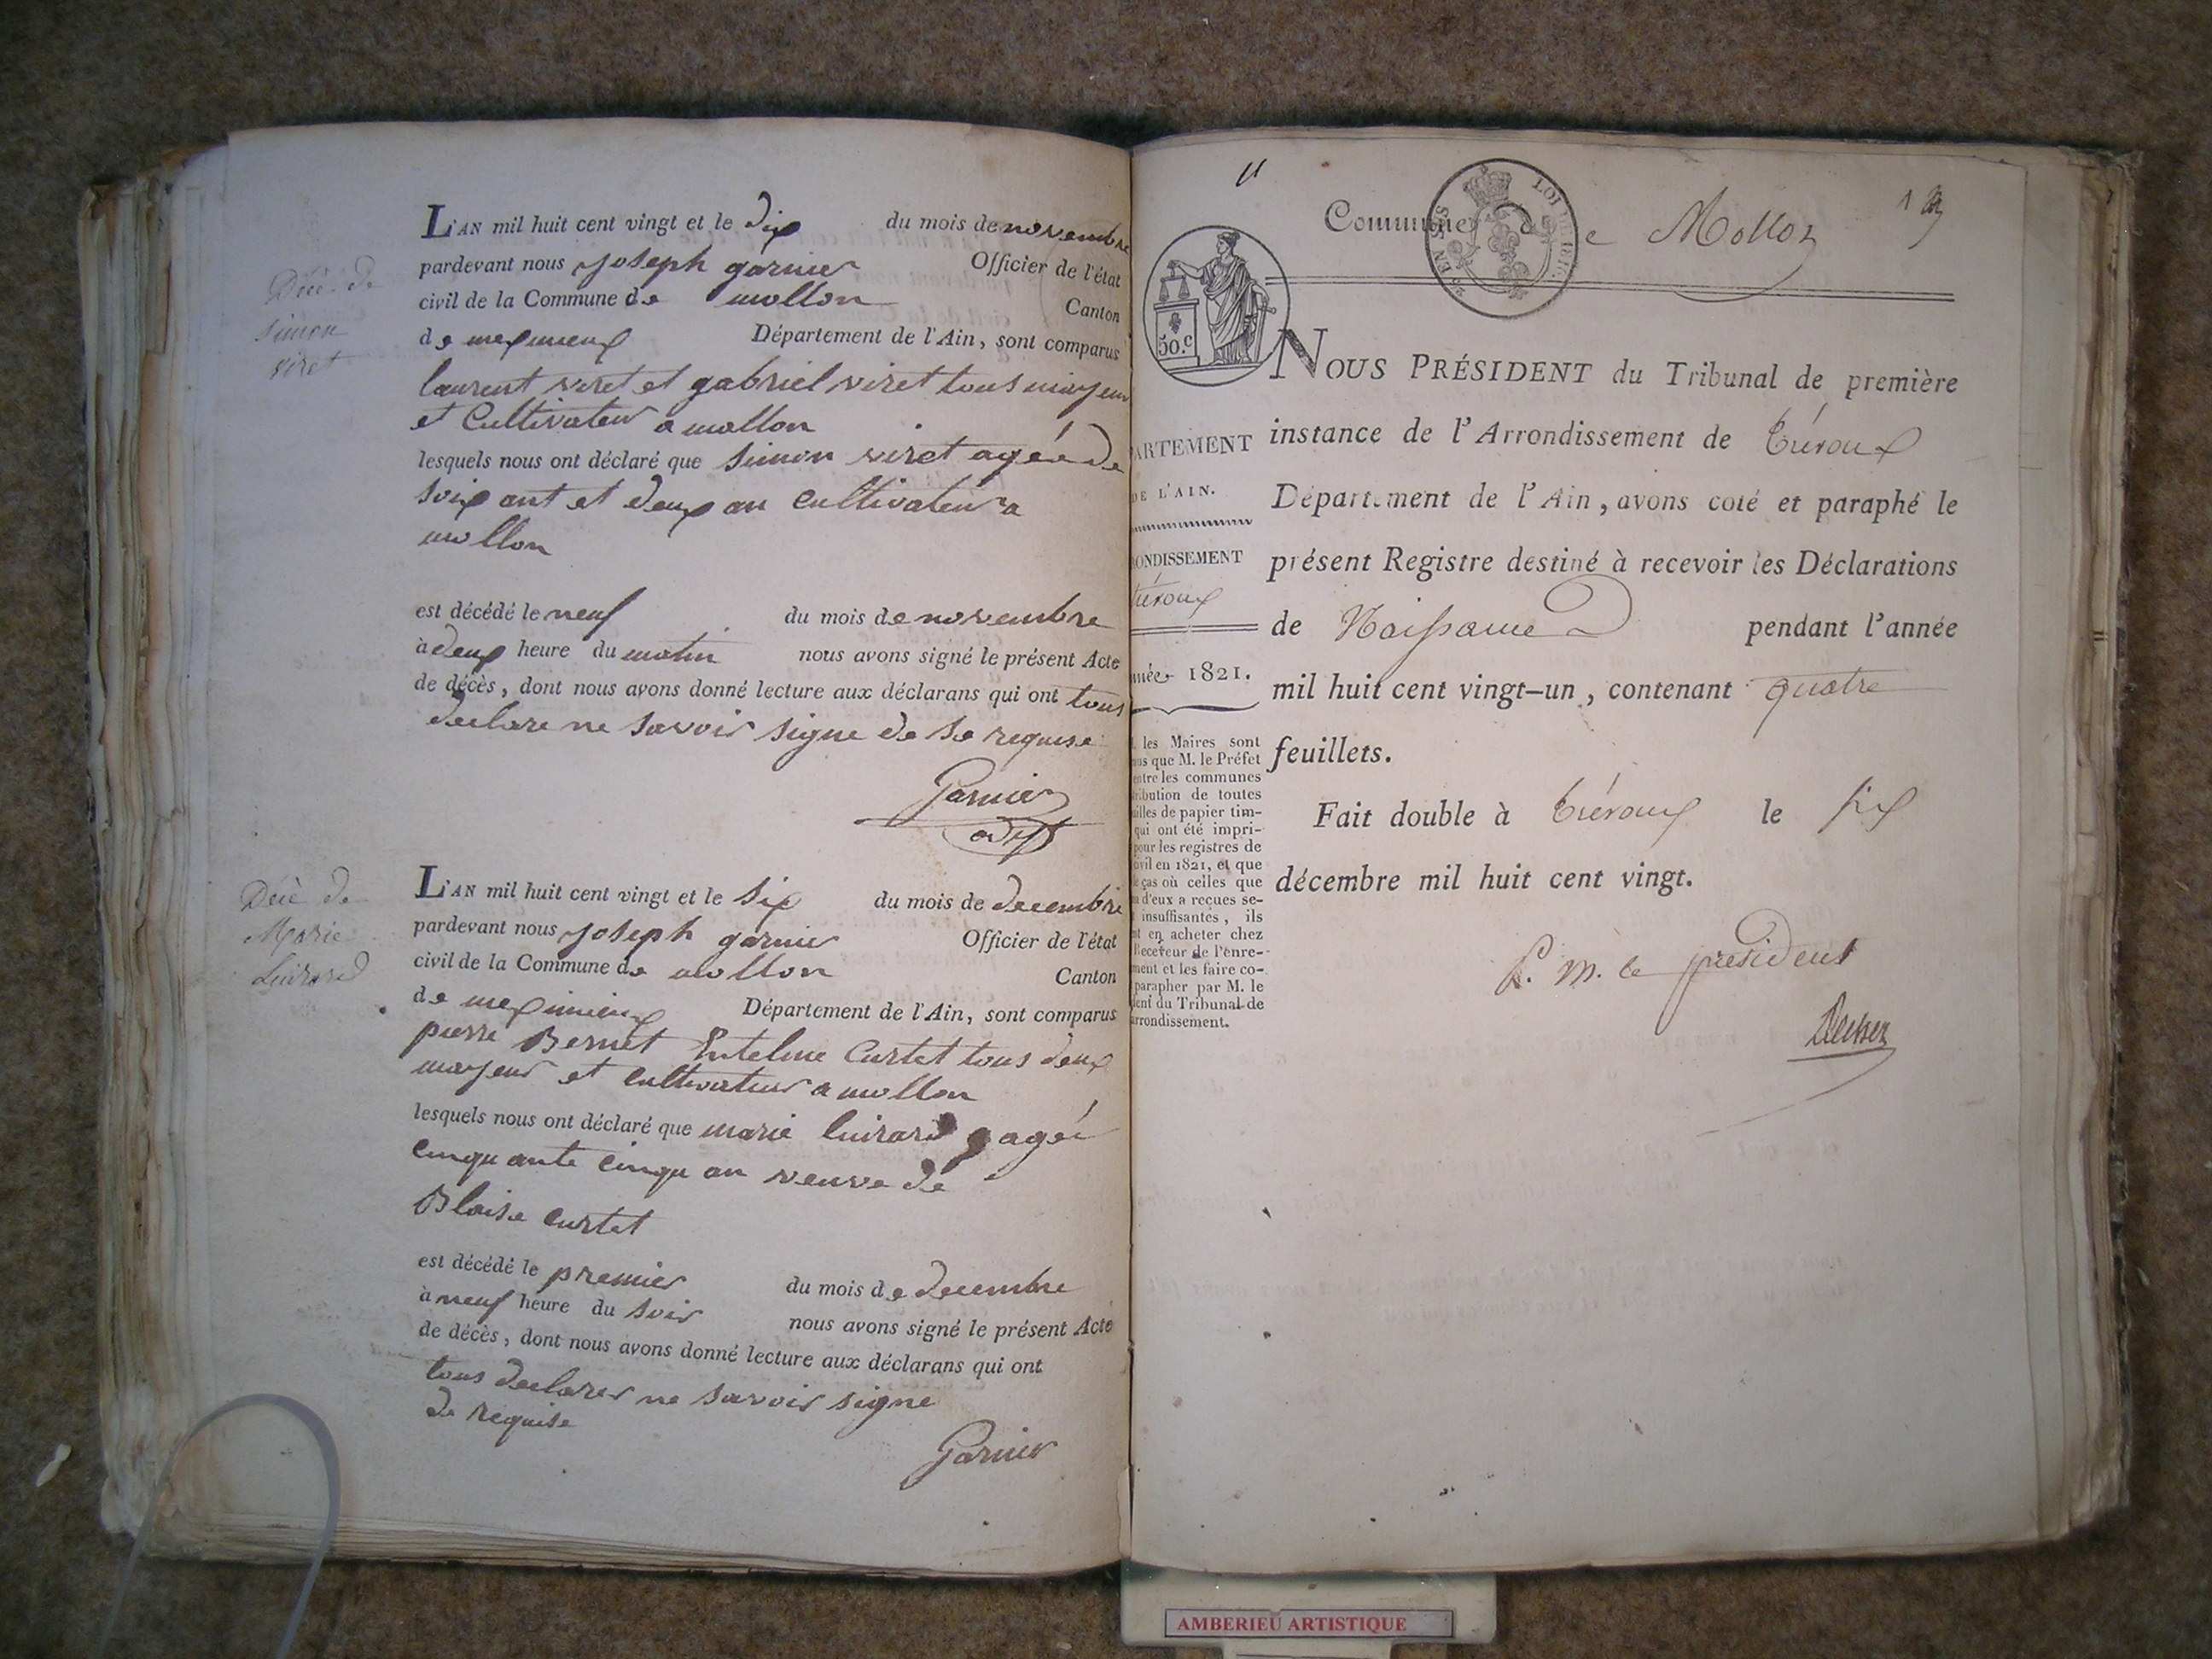 Décè de
simon
viret
L'AN mil huit cent vingt et le dix du mois de novembre
pardevant nous joseph garnier Officier de l'état
civil de la Commune de mollon Canton
de meximieux Département de l'Ain, sont comparus
laurent viret et gabriel viret tous majeur
et Cultivateur a mollon
lesquels nous ont déclaré que simon viret agée de
soix ant et deux an cultivateur a
mollon
est décédé le neuf du mois de novembre
à deux heure du matin nous avons signé le présent Acte
de décès, dont nous avons donné lecture aux déclarans qui ont tous
declare ne savoir signe de se requise
Garnier
Décè de
Marie
Luirard
L'AN mil huit cent vingt et le six du mois de decembre
pardevant nous joseph garnier Officier de l'état
civil de la Commune de mollon Canton
de meximieux Département de l'Ain, sont comparus
pierre Bernet Enteline Curtet tous deux
majeur et cultivateur a mollon
lesquels nous ont déclaré que marie luirard agée
cinquante cinqu an veuve de
Blaise curtet
est décédé le premier du mois de decembre
à neuf heure du soir nous avons signé le présent Acte
de décès, dont nous avons donné lecture aux déclarans qui ont
tous declarer ne savoir signe
de requise
Garnier
Commune de Mollon
50.c
NOUS PRÉSIDENT du Tribunal de première
instance de l'Arrondissement de Trévoux
Département de l'Ain, avons coté et paraphé le
présent Registre destiné à recevoir les Déclarations
de Naissance pendant l'année
mil huit cent vingt-un, contenant quatre
feuillets.
Fait double à Trévoux le six
décembre mil huit cent vingt.
P. M. le président
ARTEMENT
DE L'AIN.
ONDISSEMENT
Trévoux
née 1821.
les Maires sont
us que M. le Préfet
entre les communes
ribution de toutes
illes de papier tim-
qui ont été impri-
pour les registres de
ivil en 1821, et que
cas où celles que
d'eux a reçues se-
insuffisantes, ils
nt en acheter chez
Receveur de l'enre-
ment et les faire co-
parapher par M. le
dent du Tribunal de
rrondissement.
AMBERIEU ARTISTIQUE